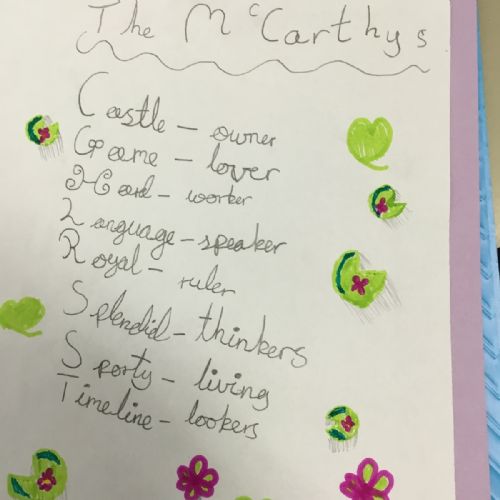 The McCarthys
Castle - owner
Game - lover
Hard - worker
Language - speaker
Royal - ruler
Splendid - thinkers
Sporty - living
Timeline - lookers